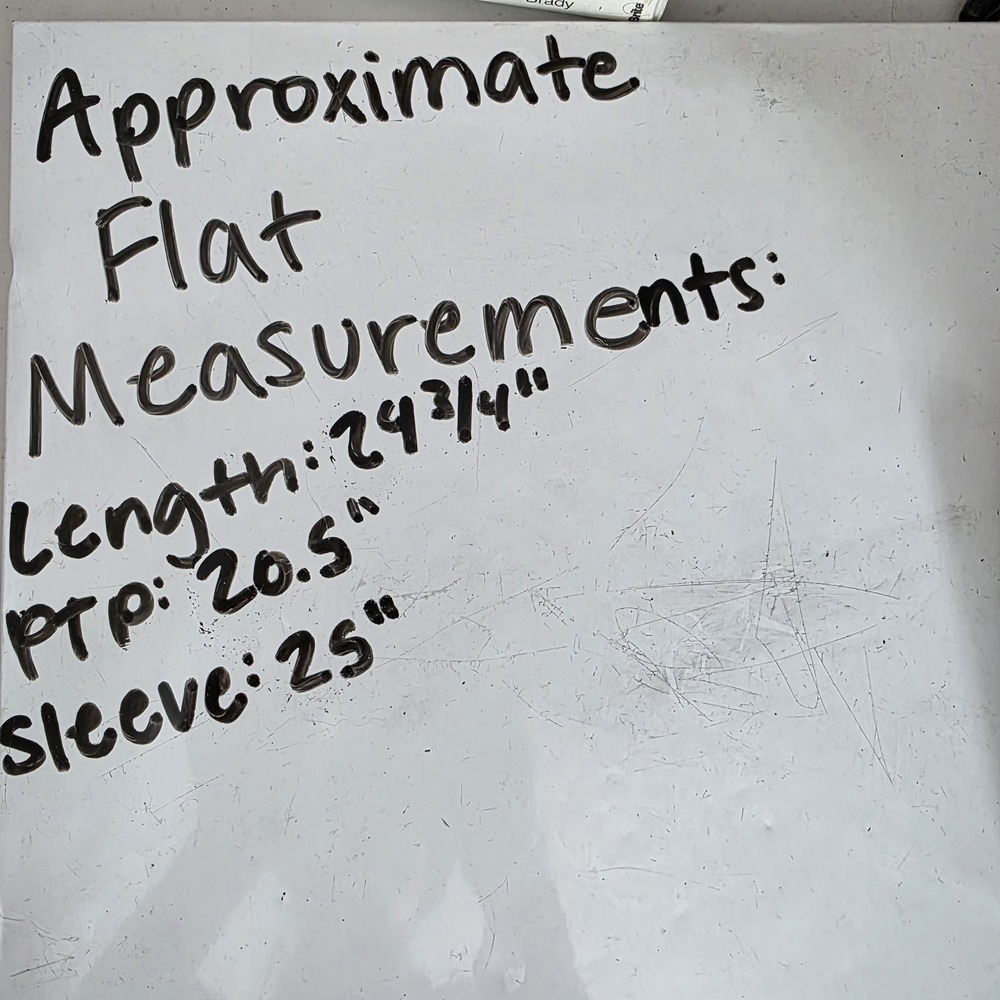 Brady
Brite
Approximate
Flat
Measurements:
Length: 24 3/4"
PTP: 20.5"
Sleeve: 25"